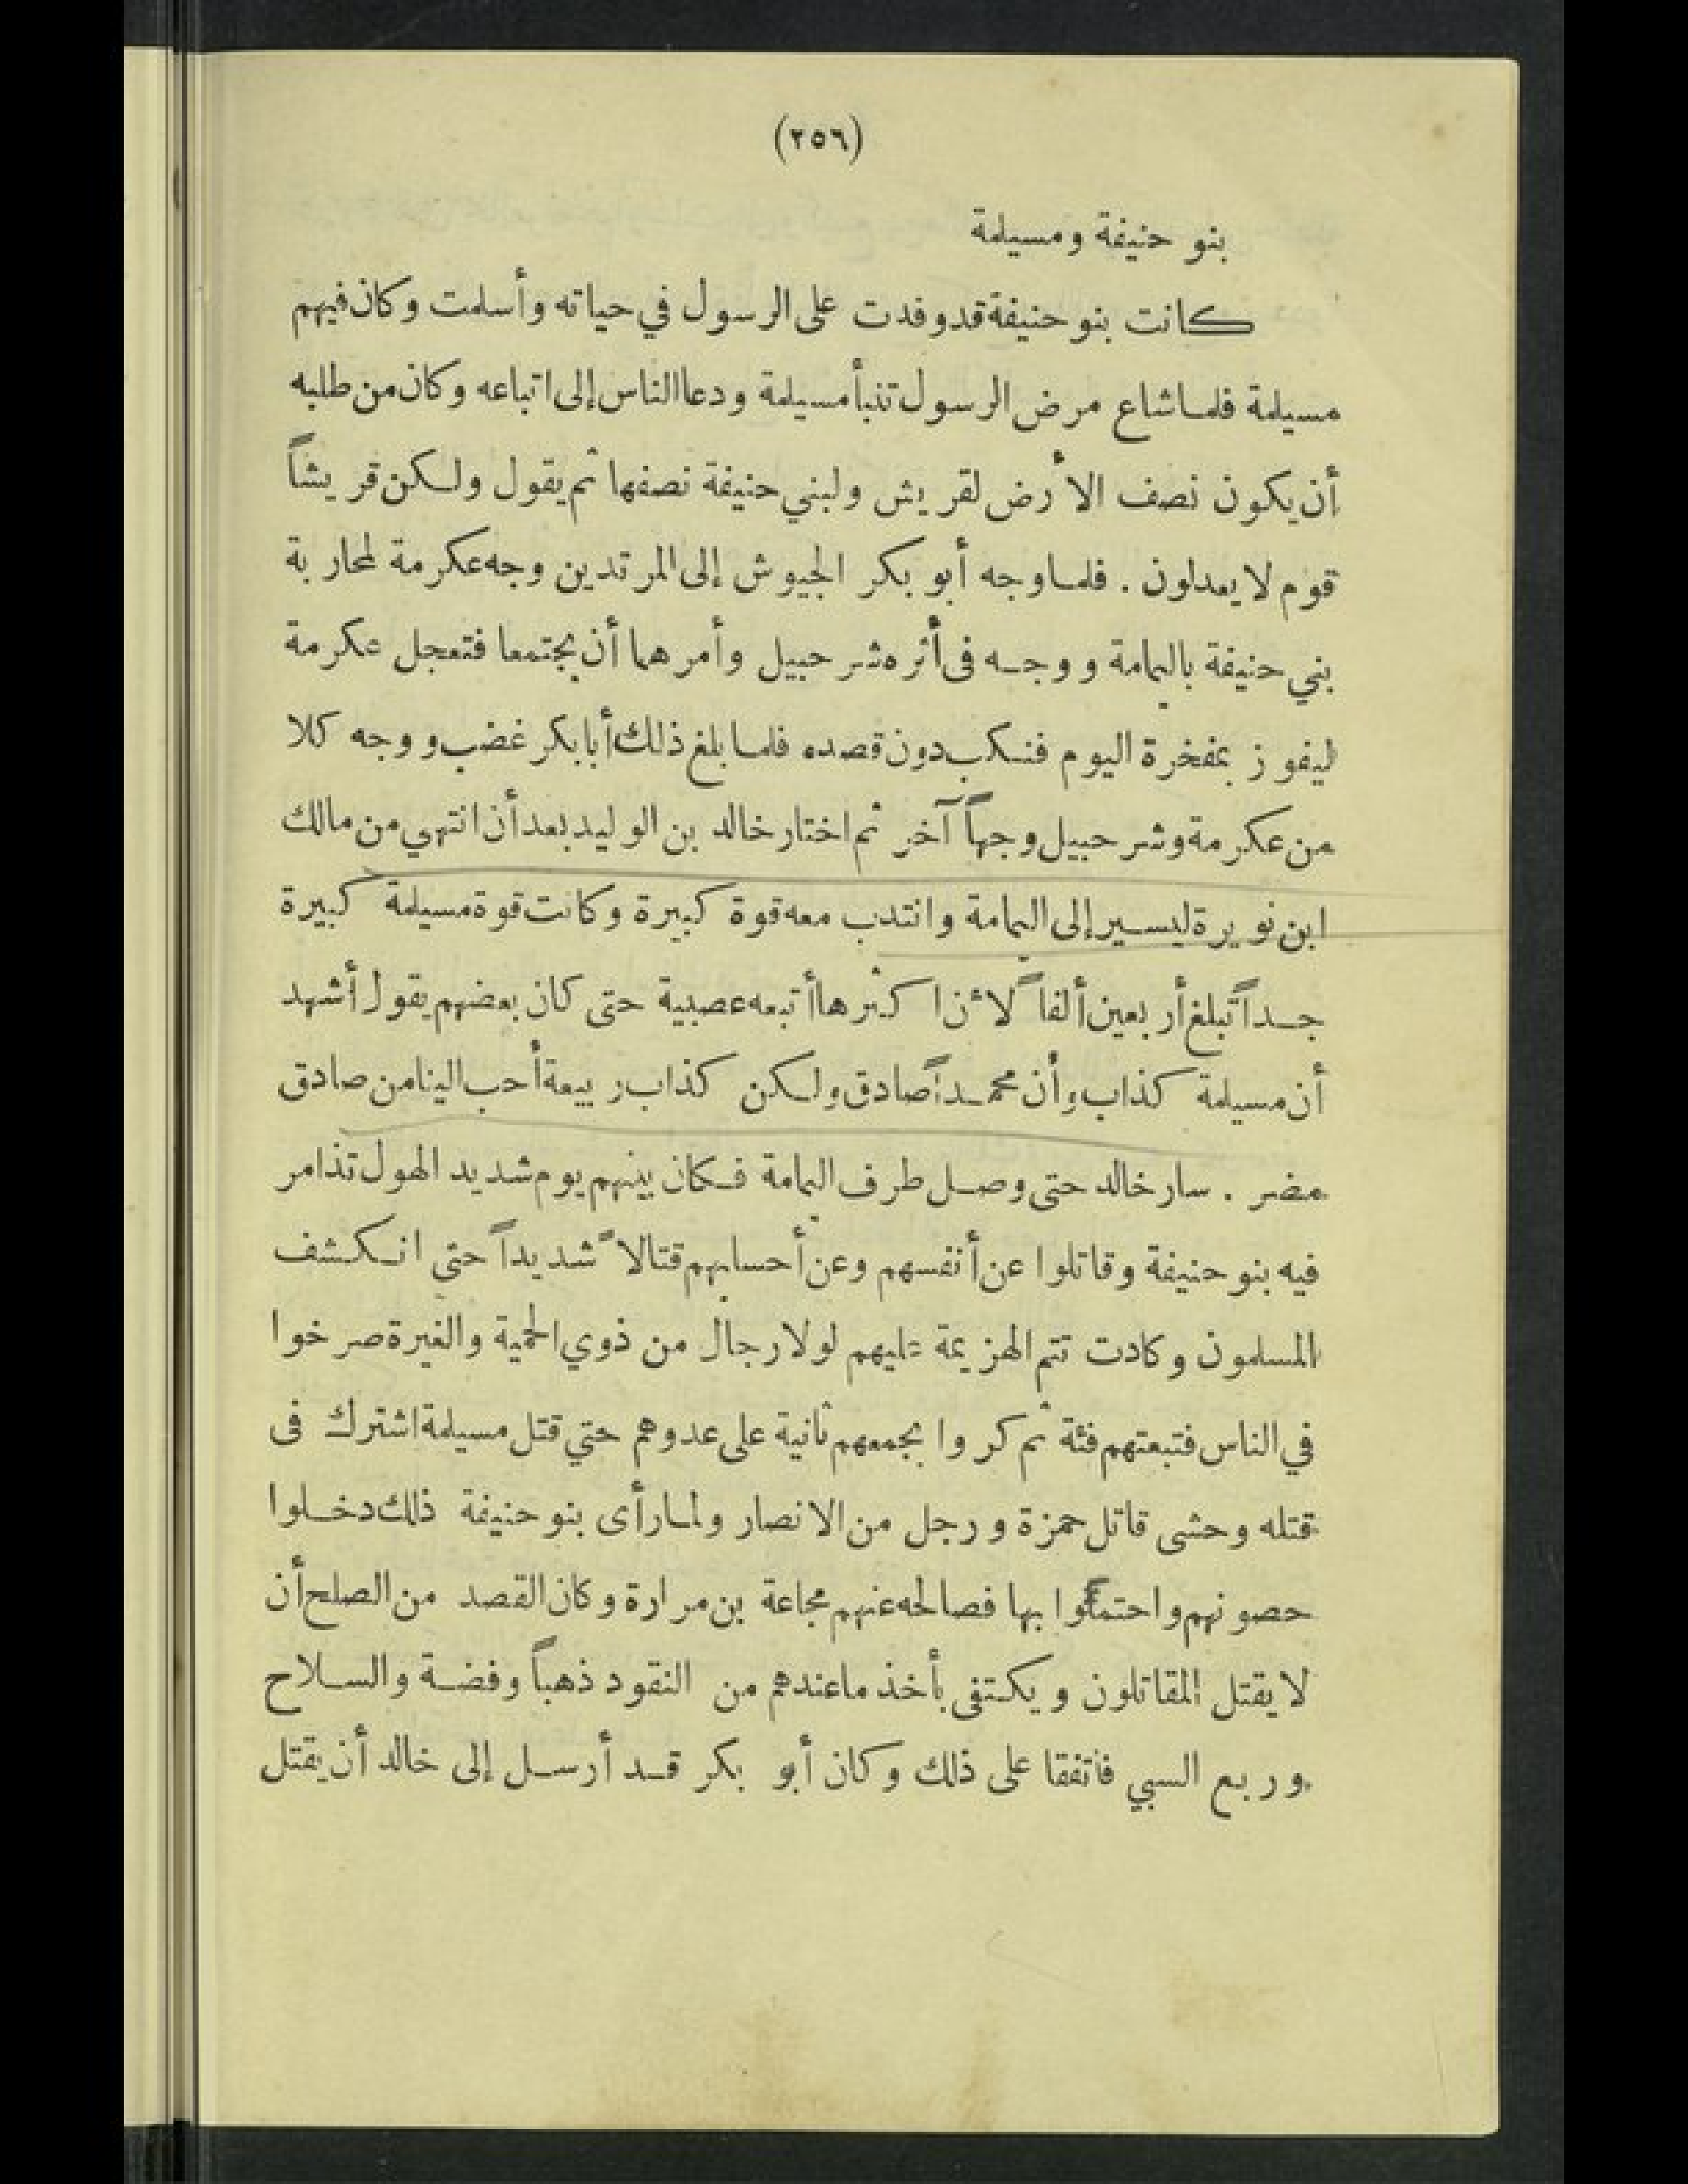 (٢٥٦)
بنو حنيفة ومسيلمة
كانت بنو حنيفة قد وفدت على الرسول في حياته وأسلمت وكان فيهم
مسيلمة فلما شاع مرض الرسول تنبأ مسيلمة ودعا الناس إلى اتباعه وكان من طلبه
أن يكون نصف الأرض لقريش ولبني حنيفة نصفها ثم يقول ولكن قريشاً
قوم لا يعدلون . فلما وجه أبو بكر الجيوش إلى المرتدين وجه عكرمة لمحاربة
بني حنيفة باليمامة ووجه فى أثره شرحبيل وأمرهما أن يجتمعا فتعجل عكرمة
ليفوز بمفخرة اليوم فنكب دون قصده فلما بلغ ذلك أبا بكر غضب ووجه كلا
من عكرمة وشرحبيل وجهاً آخر ثم اختار خالد بن الوليد بعد أن انتهي من مالك
ابن نويرة ليسير إلى اليمامة وانتدب معه قوة كبيرة وكانت قوة مسيلمة كبيرة
جداً تبلغ أربعين ألفاً لأن اكثرها أتبعه عصبية حتى كان بعضهم يقول أشهد
أن مسيلمة كذاب وأن محمداً صادق ولكن كذاب ربيعة أحب الينا من صادق
مضر . سار خالد حتى وصل طرف اليمامة فكان بينهم يوم شديد الهول تذامر
فيه بنو حنيفة وقاتلوا عن أنفسهم وعن أحسابهم قتالاً شديداً حتي انكشف
المسلمون وكادت تتم الهزيمة عليهم لولا رجال من ذوي الحمية والغيرة صرخوا
في الناس فتبعتهم فئة ثم كروا بجمعهم ثانية على عدوهم حتي قتل مسيلمة اشترك فى
قتله وحشى قاتل حمزة ورجل من الانصار ولما رأى بنو حنيفة ذلك دخلوا
حصونهم واحتموا بها فصالحه عنهم مجاعة بن مرارة وكان القصد من الصلح أن
لا يقتل المقاتلون ويكتفى بأخذ ما عندهم من النقود ذهباً وفضة والسلاح
وربع السبي فاتفقا على ذلك وكان أبو بكر قد أرسل إلى خالد أن يقتل